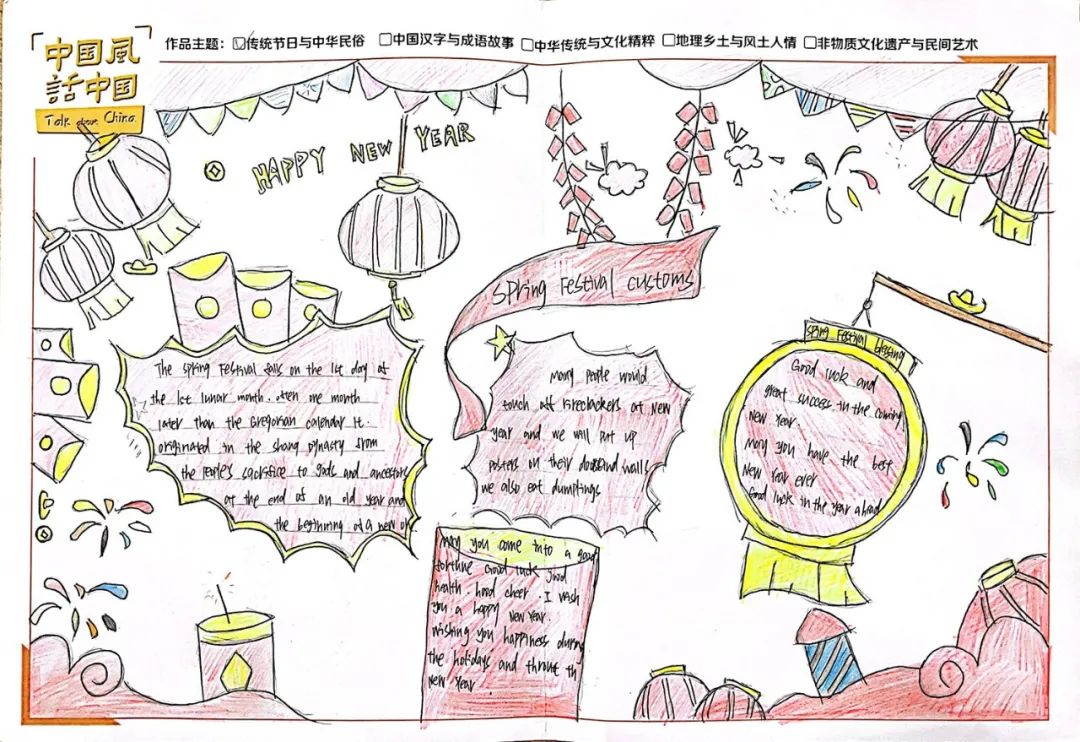 中国風
話中国
Talk about China.
作品主题: ☑传统节日与中华民俗 □中国汉字与成语故事 □中华传统与文化精粹 □地理乡土与风土人情 □非物质文化遗产与民间艺术
HAPPY NEW YEAR
Spring Festival customs
The Spring Festival falls on the 1st day of
the 1ct lunar month. often one month
later than the Gregorian calendar It.
originated in the shang dynasty from
the people's sacrifice to gods and ancestors
at the end of an old year and
the beginning of a new on
Many people would
touch off firecrackers at New
year and we will put up
posters on their doors and walls
we also eat dumplings
Spring Festival blessing
Good luck and
great success in the coming
New Year.
May you have the best
New Year ever
Good luck in the year ahead
May you come into a good
fortune Good luck good
health. hood cheer. I wish
you a happy New Year.
Wishing you happiness during
the holidays and throut th
New Year.